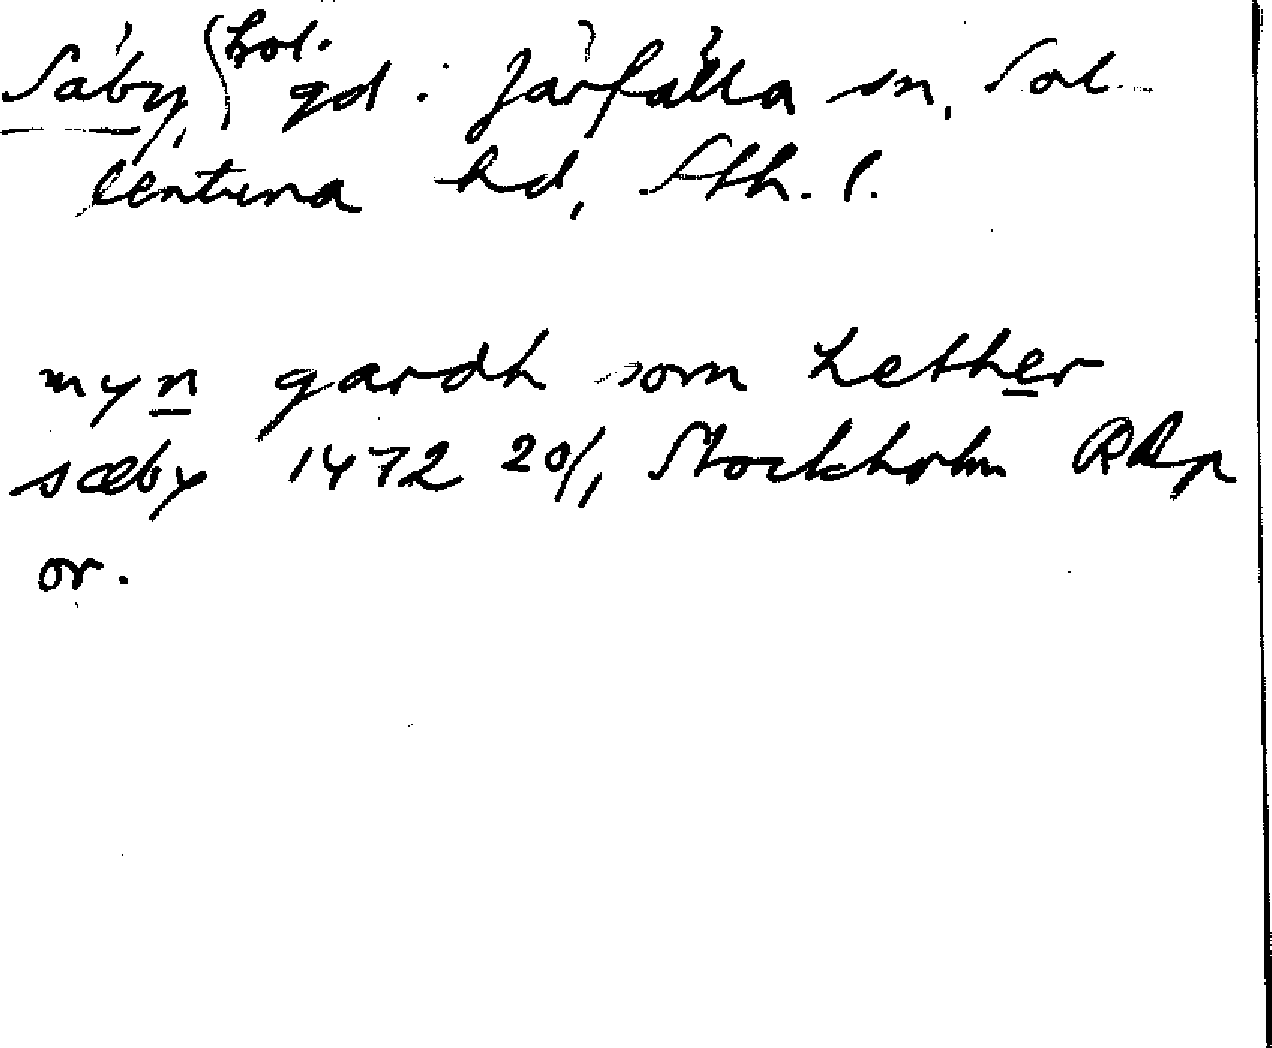 Säby, hol. gd. Järfälla sn, Sol-
lentuna hd, Sth. l.
myn gardh som hether
sæby 1472 20/1 Stockholm RAp
or.